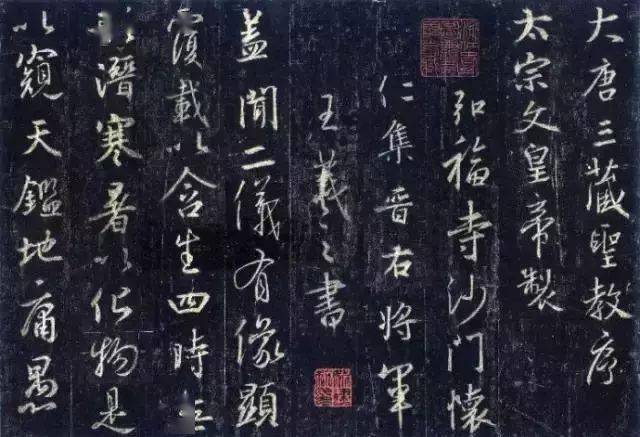 大唐三藏聖教序
太宗文皇帝製
弘福寺沙門懷
仁集晉右將軍
王羲之書
蓋聞二儀有像顯
覆載以含生四時无
形潛寒暑以化物是
以窺天鑑地庸愚